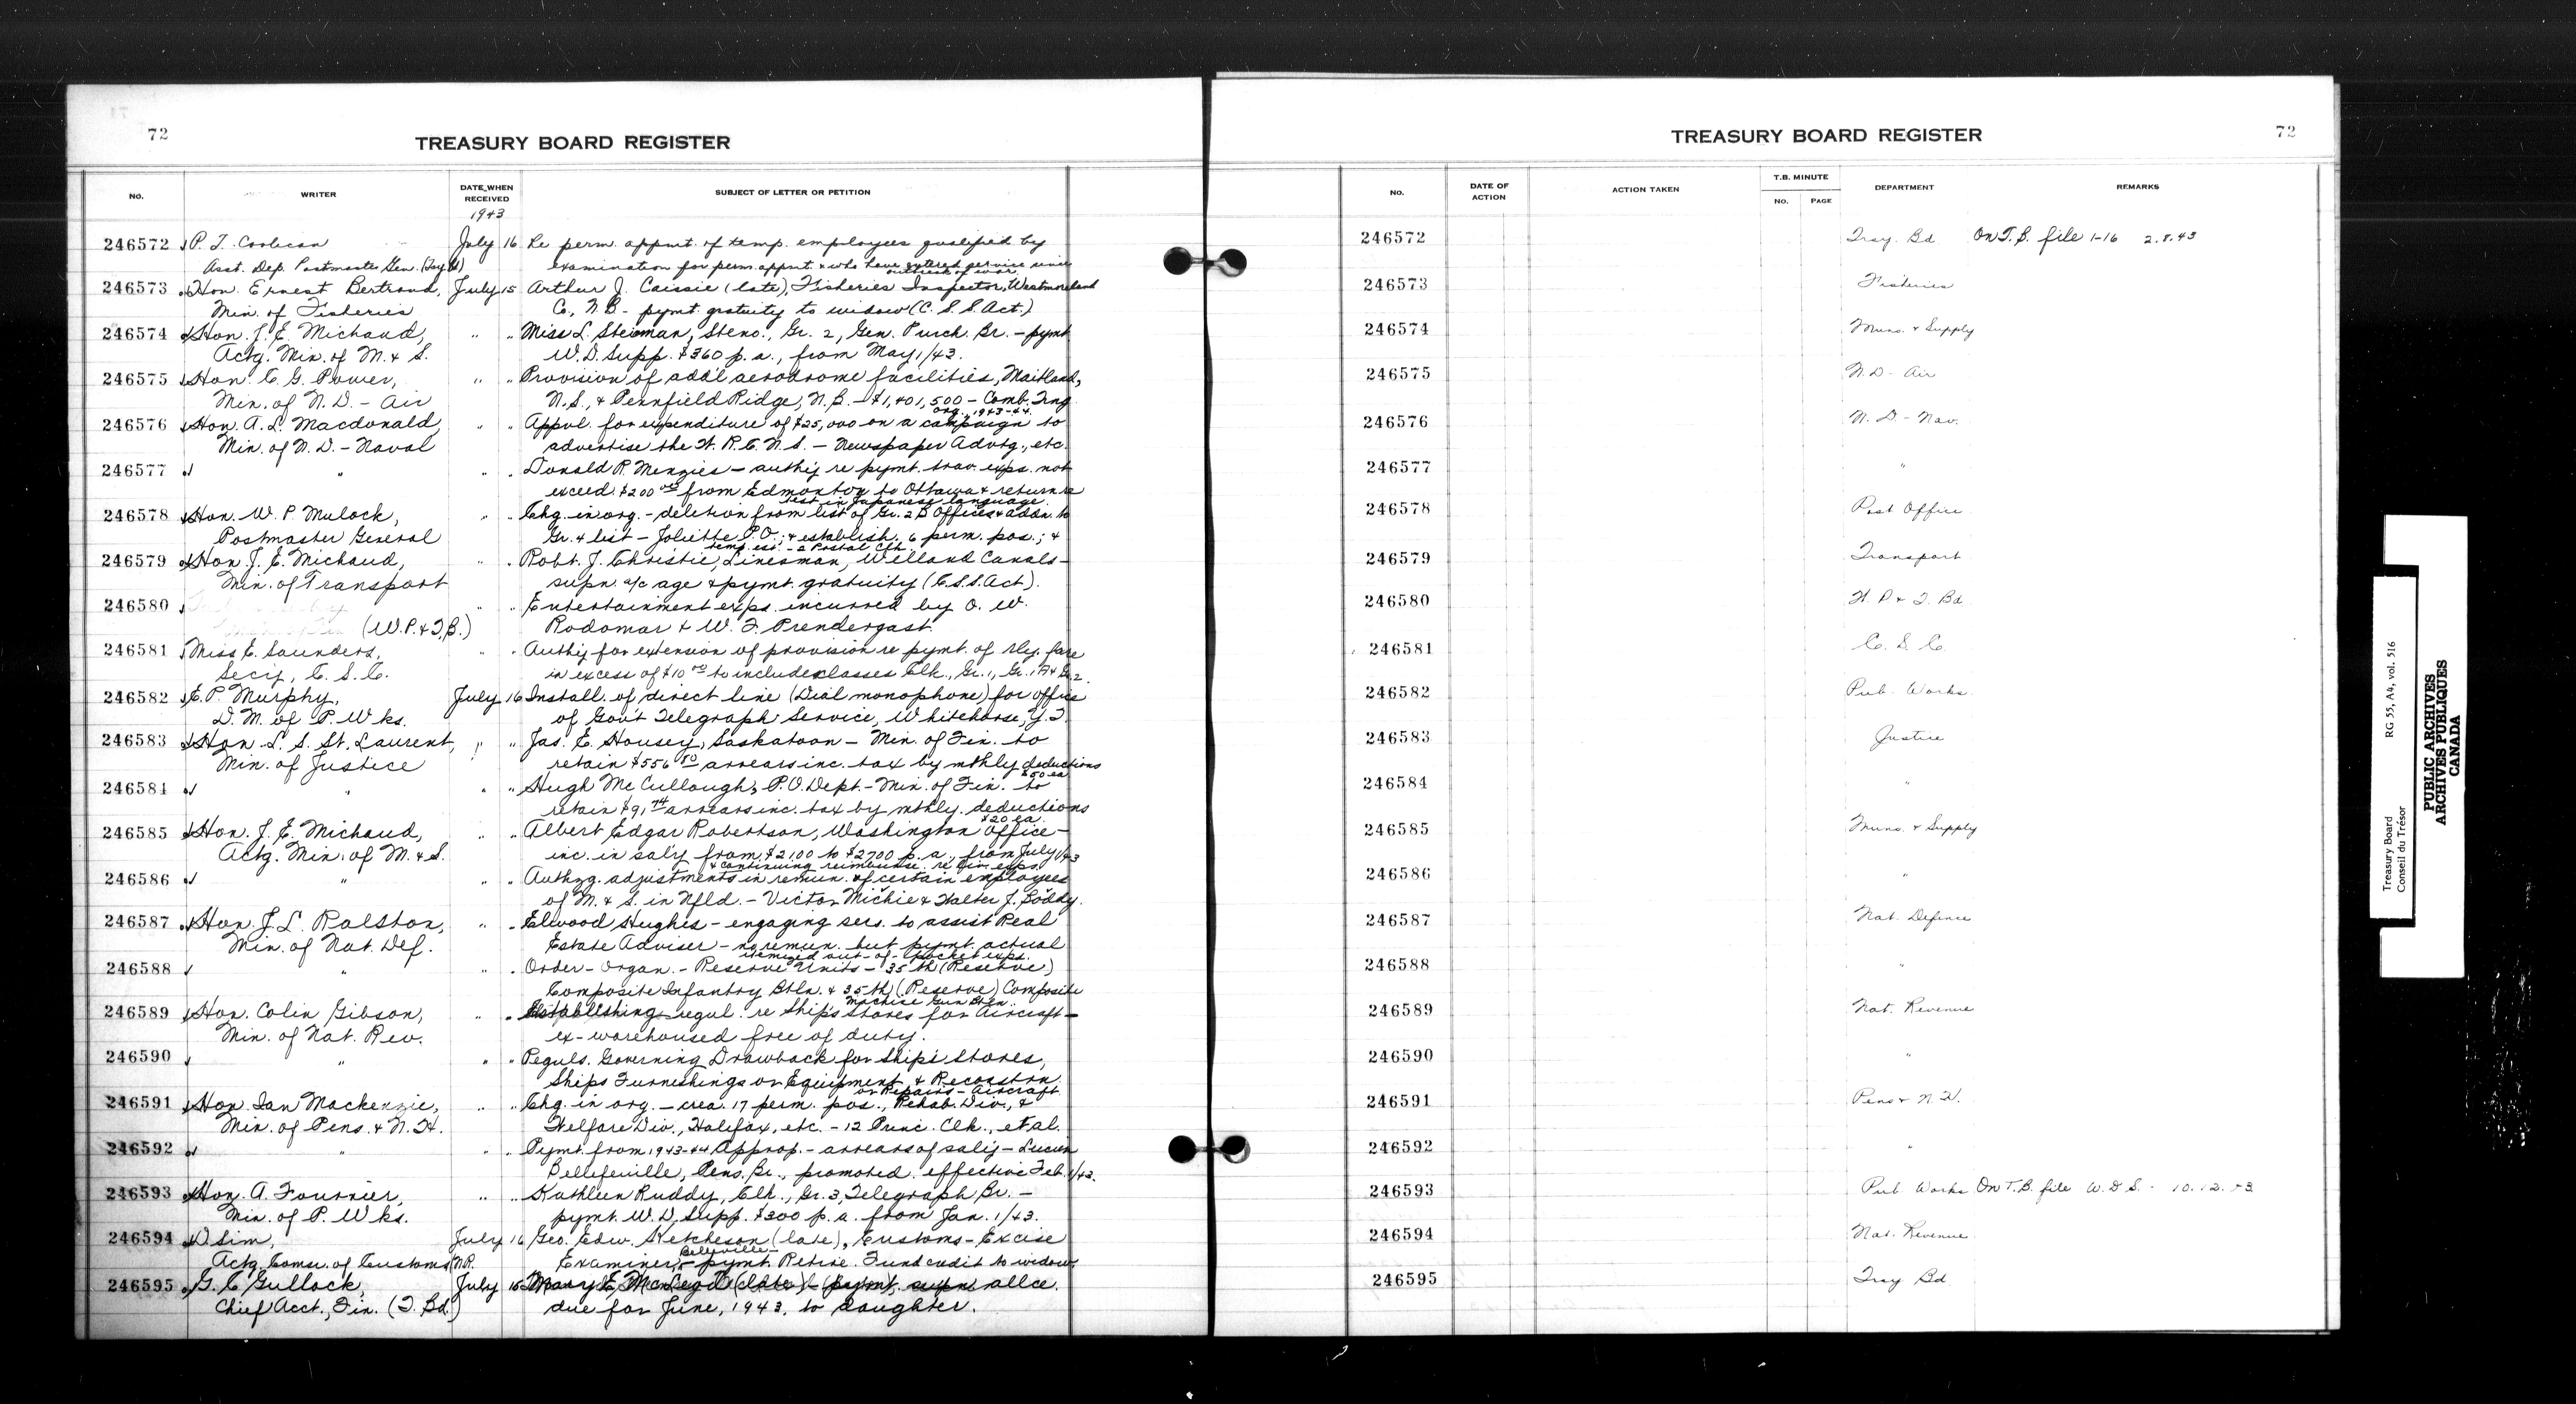 72
TREASURY BOARD REGISTER
NO. WRITER DATE WHEN RECEIVED SUBJECT OF LETTER OR PETITION
1943
246572 P. T. Coolican July 16 Re perm. appmt. of temp. employees qualified by
Asst. Dep. Postmaster Gen. examination for perm. appmt. & who have entered service since
outbreak of war.
246573 Hon. Ernest Bertrand, July 15 Arthur J. Caissie (late), Fisheries Inspector, Westmoreland
Min. of Fisheries Co., N.B. - pymt. gratuity to widow (C.S.S. Act.)
246574 Hon. J. E. Michaud, " " Miss L. Steinman, Steno., Gr. 2, Gen. Purch. Br. - pymt.
Actg. Min. of M. & S. W.D. Supp. $360 p.a., from May 1/43.
246575 Hon. C. G. Power, " " Provision of add'l aerodrome facilities, Maitland,
Min. of N.D. - Air N.S., & Pennfield Ridge, N.B. - $1,401,500 - Comb. Trng.
org., 1943-44.
246576 Hon. A. L. Macdonald, " " Appvl. for expenditure of $25,000 on a campaign to
Min. of N.D. - Naval advertise the W.R.C.N.S. - Newspaper Advtg., etc.
246577 " " " Donald R. Menzies - auth'y re pymt. trav. exps. not
exceed. $200 00 from Edmonton to Ottawa & return re
test in Japanese language.
246578 Hon. W. P. Mulock, " " Chg. in org. - deletion from list of Gr. 2B Offices & addn. to
Postmaster General Gr. 4 list - Joliette P.O.; & establish. 6 perm. pos.; &
temp. est. - 2 Postal Clk.
246579 Hon. J. E. Michaud, " " Robt. J. Christie, Linesman, Welland Canals -
Min. of Transport supn. a/c age & pymt. gratuity (C.S.S. Act).
246580 " " Entertainment exps. incurred by O. W.
(W.P. & T.B.) Rodomar & W. F. Prendergast.
246581 Miss E. Saunders, " " Auth'y for extension of provision re pymt. of rly. fare
Sec'y, C.S.C. in excess of $10 00 to include classes Clk., Gr. 1, Gr. 1A & Gr. 2.
246582 E. P. Murphy, July 16 Install. of direct line (Dial monophone) for office
D.M. of P. Wks. of Gov't Telegraph Service, Whitehorse, Y.T.
246583 Hon. L. S. St. Laurent, " " Jas. E. Housey, Saskatoon - Min. of Fin. to
Min. of Justice retain $556 50 arrears inc. tax by mthly deductions
$50 ea.
246584 " " " Hugh McCullough, P.O. Dept. - Min. of Fin. to
retain $91 74 arrears inc. tax by mthly. deductions
$20 ea.
246585 Hon. J. E. Michaud, " " Albert Edgar Robertson, Washington Office -
Actg. Min. of M. & S. inc. in sal'y from $2100 to $2700 p.a., from July 1/43
& continuing reimburse. re liv. exps.
246586 " " " Authzg. adjustments in remun. of certain employees
of M. & S. in Nfld. - Victor Michie & Walter J. Boddy.
246587 Hon. J. L. Ralston, " " Elwood Hughes - engaging sers. to assist Real
Min. of Nat. Def. Estate Adviser - no remun. but pymt. actual
itemized out-of-pocket exps.
246588 " " " Order - Organ. - Reserve Units - 35th (Reserve)
Composite Infantry Btln. & 35th (Reserve) Composite
Machine Gun Btln.
246589 Hon. Colin Gibson, " " Establishing regul. re Ships Stores for Aircraft -
Min. of Nat. Rev. ex-warehoused free of duty.
246590 " " " Reguls. Governing Drawback for Ships Stores,
Ships Furnishings or Equipment & Reconstrn.
or Repairs - Aircraft
246591 Hon. Ian Mackenzie, " " Chg. in org. - crea. 17 perm. pos., Rehab. Div., &
Min. of Pens. & N.H. Welfare Div., Halifax, etc. - 12 Princ. Clk., et al.
246592 " " " Pymt. from 1943-44 Approp. - arrears of sal'y - Lucien
Bellefeuille, Pens. Br., promoted effective Feb. 1/43.
246593 Hon. A. Fournier, " " Kathleen Ruddy, Clk., Gr. 3, Telegraph Br. -
Min. of P. Wks. pymt. W.D. Supp. $300 p.a. from Jan. 1/43.
246594 D. Sim, July 16 Geo. Edw. Ketcheson (late), Customs-Excise
Actg. Comsr. of Customs (N.R. Examiner, Belleville - pymt. Retire. Fund credit to widow
246595 G. C. Gullock, July 15 Mary E. McLeod (late) - pymt. supn allce.
Chief Acct., Fin. (T. Bd.) due for June, 1943, to daughter.
TREASURY BOARD REGISTER
72
NO. DATE OF ACTION ACTION TAKEN T.B. MINUTE NO. PAGE DEPARTMENT REMARKS
246572 Trsy. Bd On T.B. file 1-16 2.8.43
246573 Fisheries
246574 Muns. & Supply
246575 N.D - Air
246576 N.D - Nav.
246577 "
246578 Post Office
246579 Transport
246580 W. P & T. Bd
246581 C. S. C.
246582 Pub. Works
246583 Justice
246584 "
246585 Muns. & Supply
246586 "
246587 Nat. Defence
246588 "
246589 Nat. Revenue
246590 "
246591 Pens & N.H.
246592 "
246593 Pub. Works On T.B. file W.D S. - 10.12.43
246594 Nat. Revenue
246595 Trsy Bd
Treasury Board RG 55, A4, vol. 516
Conseil du Trésor
PUBLIC ARCHIVES
ARCHIVES PUBLIQUES
CANADA